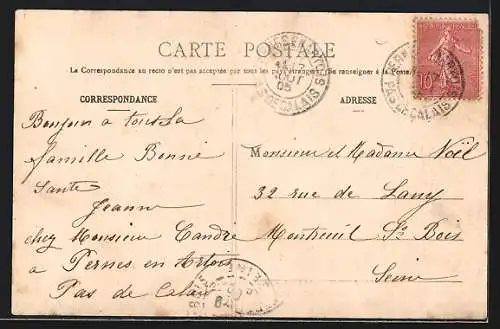 CARTE POSTALE
La Correspondance au recto n'est pas acceptée par tous les pays étrangers. (Se renseigner à la Poste)
CORRESPONDANCE
ADRESSE
Bonjour a toute la
famille Bonne
Santé
Jeanne
chez Monsieur Candre
a Pernes en Artois
Pas de Calais
Monsieur et Madame Noël
32 rue de Lany
Montreuil Ss Bois
Seine
10
PAS DE CALAIS
05
PAS DE CALAIS